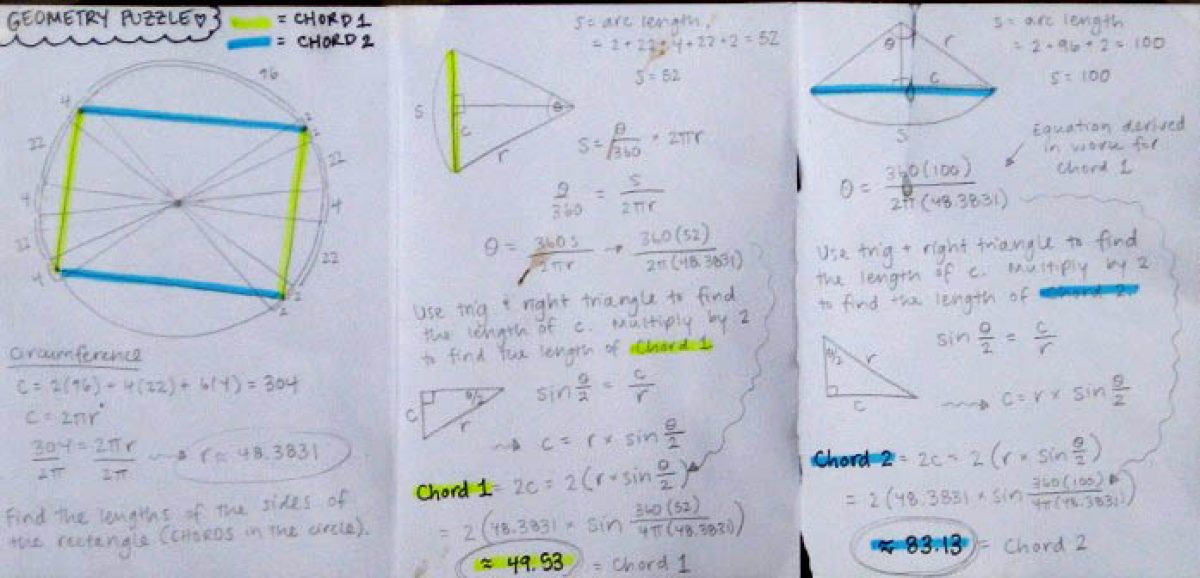 GEOMETRY PUZZLE
= CHORD 1
= CHORD 2
96
4
2
2
22
22
4
4
22
22
4
2
2
Circumference
C = 2(96) + 4(22) + 6(4) = 304
C = 2πr
304/2π = 2πr/2π → r ≈ 48.3831
Find the lengths of the sides of
the rectangle (CHORDS in the circle).
S = arc length
= 2 + 22 + 4 + 22 + 2 = 52
S = 52
S
θ
c
r
S = θ/360 · 2πr
θ/360 = S/2πr
θ = 360s/2πr → 360(52)/2π(48.3831)
Use trig + right triangle to find
the length of c. Multiply by 2
to find the length of Chord 1
θ/2
c
r
sin θ/2 = c/r
→ c = r × sin θ/2
Chord 1 = 2c = 2(r × sin θ/2)
= 2(48.3831 × sin 360(52)/4π(48.3831))
≈ 49.53 = Chord 1
S = arc length
= 2 + 96 + 2 = 100
S = 100
θ
r
c
S
Equation derived
in work for
Chord 1
θ = 360(100)/2π(48.3831)
Use trig + right triangle to find
the length of c. Multiply by 2
to find the length of Chord 2.
θ/2
r
c
sin θ/2 = c/r
→ c = r × sin θ/2
Chord 2 = 2c = 2(r × sin θ/2)
= 2(48.3831 × sin 360(100)/4π(48.3831))
≈ 83.13 = Chord 2